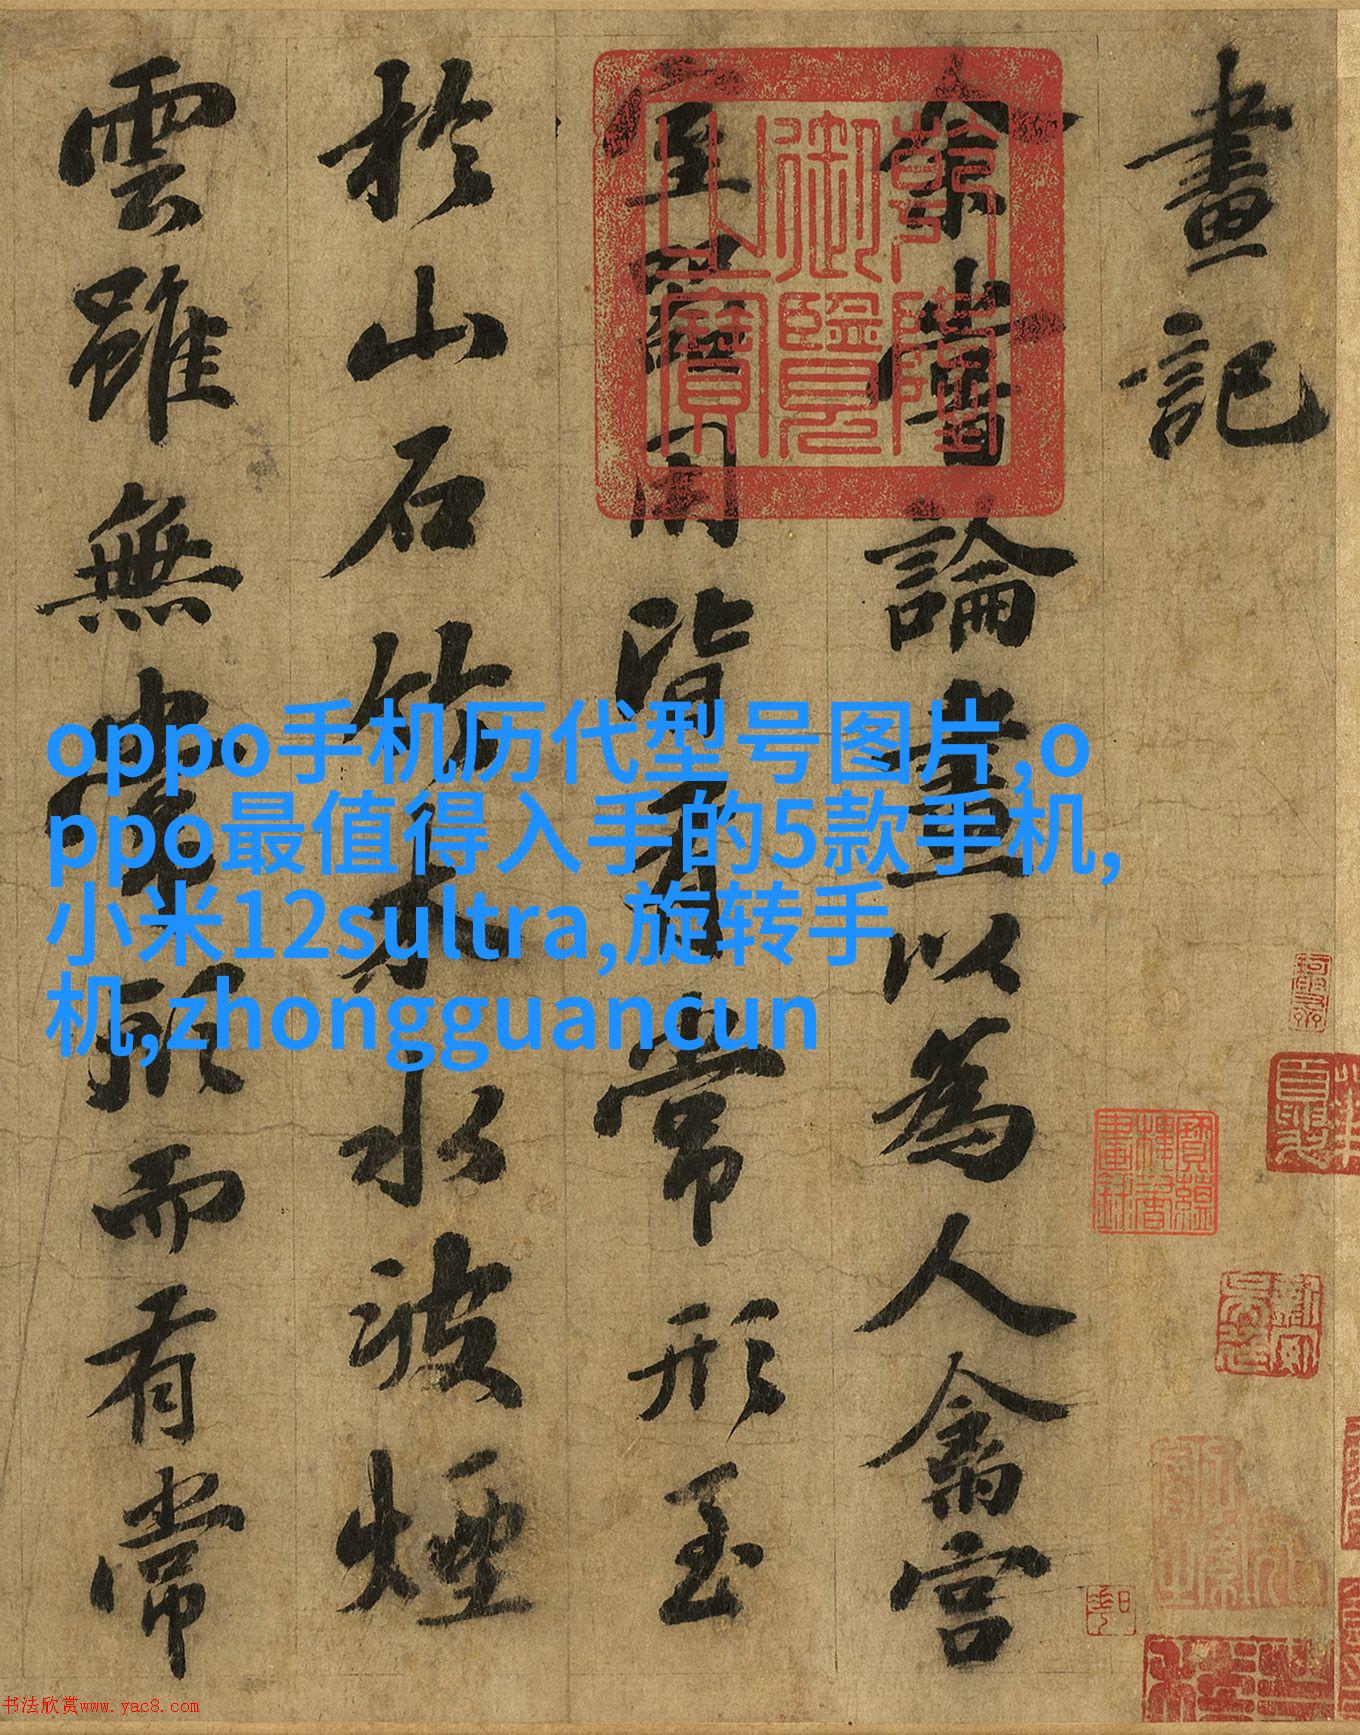 畫記
余嘗論畫以為人禽宮
室器用皆有常形至
於山石竹木水波煙
雲雖無常形而有常
乾隆御覽之寶
寶蘊樓書畫錄
oppo手机历代型号图片,o
ppo最值得入手的5款手机,
小米12sultra,旋转手
机,zhongguancun
书法欣赏www.yac8.com